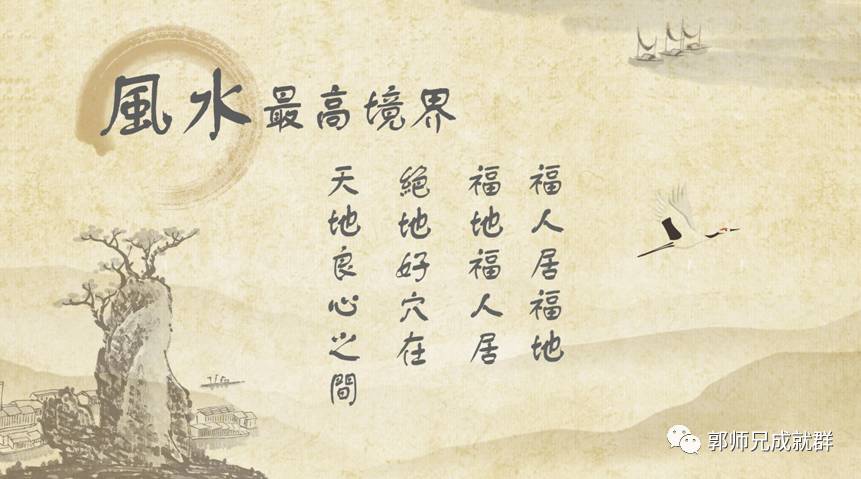 風水最高境界
福人居福地
福地福人居
絕地好穴在
天地良心之間
郭师兄成就群